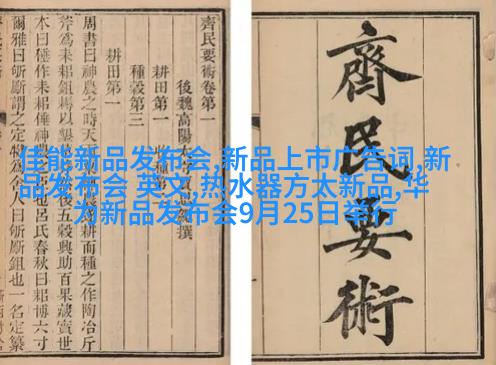 佳能新品发布会,新品上市广告词,新
品发布会 英文,热水器方太新品,华
为新品发布会9月25日举行
齊民要術
齊民要術卷第一
後魏高陽太守賈思勰撰
耕田第一
種穀第三
耕田第一
周書曰神農之時天耕而種之作陶冶斤
斧為耒耜鉏耨以墾後五穀興助百果藏實世
本曰倕作耒耜倕神農也呂氏春秋曰耜博六寸
爾雅曰斪斸謂之定犍為舍人曰斪斸鉏也一名定纂